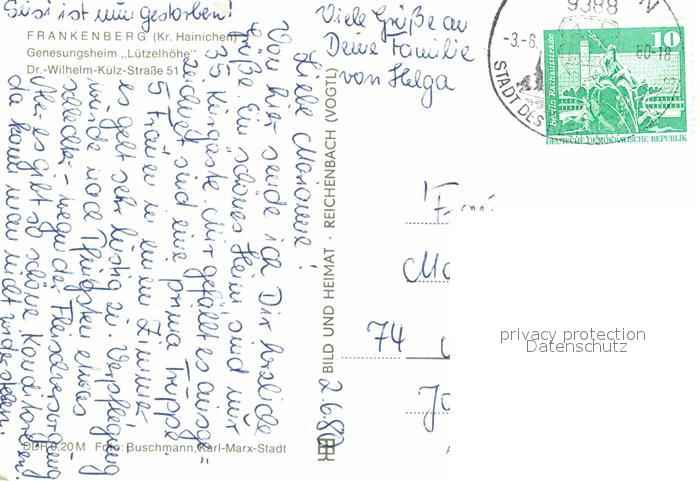 Susi ist nun gestorben!
FRANKENBERG (Kr. Hainichen)
Genesungsheim „Lützelhöhe"
Dr.-Wilhelm-Külz-Straße 51
Liebe Marianne!
Von hier sende ich Dir herzliche
Grüße. Ein schönes Heim, sind nur
35 Kurgäste. Mir gefällt es ausge-
zeichnet, sind eine prima Truppe
5 Frauen in einem Zimmer
es geht sehr lustig zu. Verpflegung
wurde nach Pfingsten etwas
schlechter - wegen der Fleischversorgung
Aber es gibt so schöne Konditoreien
da kann man nicht widerstehen.
Viele Grüße an
Deine Familie
von Helga
2.6.80
BILD UND HEIMAT · REICHENBACH (VOGTL)
DDR 0,20 M Foto: Buschmann, Karl-Marx-Stadt
9388
-3.-6.
80-18
STADT DES
10
Berlin Rathausstraße
DEUTSCHE DEMOKRATISCHE REPUBLIK
74
privacy protection
Datenschutz